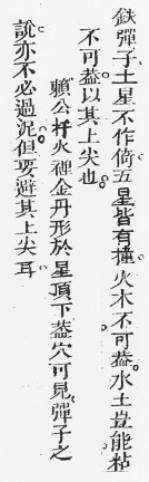 鉄彈子土星不作倚五星皆有撞火木不可葢水土豈能粘
不可葢以其上尖也
賴公扦火裡金丹形於星頂下葢穴可見彈子之
說亦不必過泥但要避其上尖耳